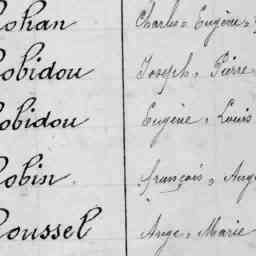 Rohan Charles = Eugène =
Robidou Joseph = Pierre
Robidou Eugène = Louis
Robin françois = Aug
Roussel Ange = Marie